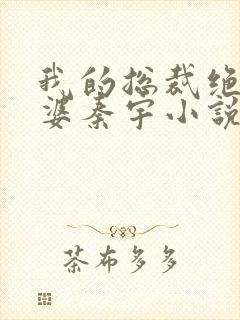 我的总裁绝
婆秦宇小説
茶布多多